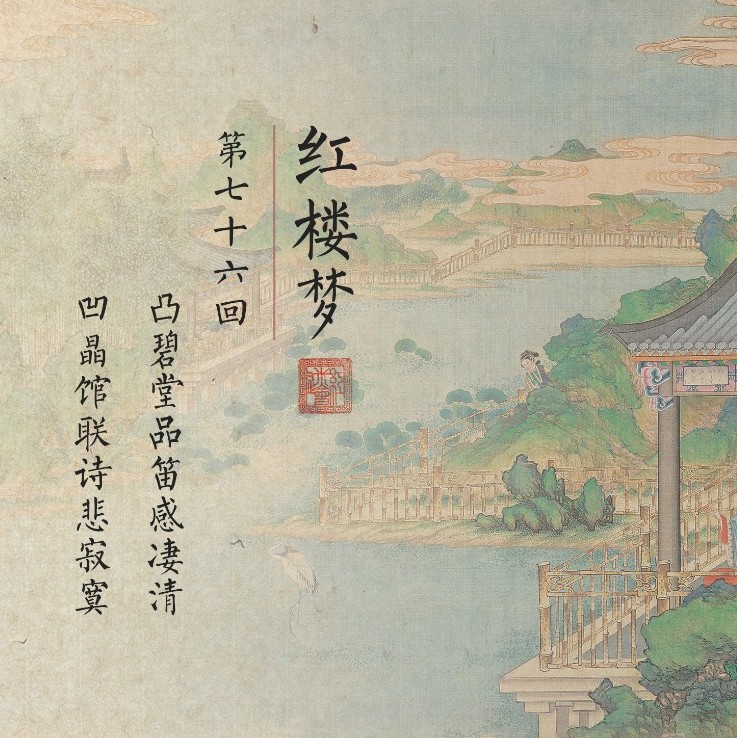 红楼梦
第七十六回
凸碧堂品笛感凄清
凹晶馆联诗悲寂寞